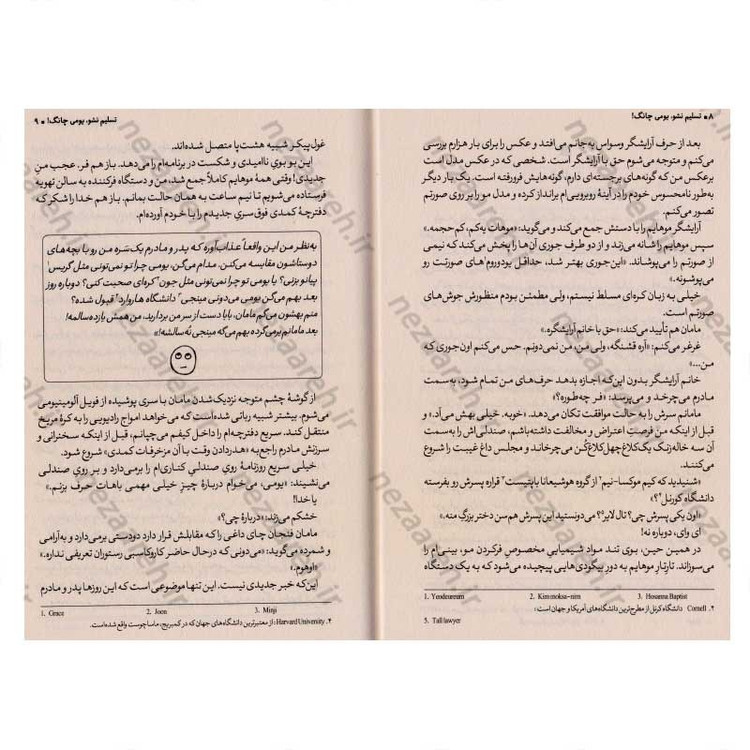 ۸ ● تسلیم نشو، یومی چانگ!
بعد از حرف آرایشگر وسواس به جانم می‌افتد و عکس را برای بار هزارم بررسی
می‌کنم و متوجه می‌شوم حق با آرایشگر است. شخصی که در عکس مدل است
برعکس من که گونه‌های برجسته‌ای دارم، گونه‌هایش فرورفته است. یک بار دیگر
به‌طور نامحسوس خودم را در آینهٔ روبرویی‌ام برانداز کرده و مدل مو را بر روی صورتم
تصور می‌کنم.
آرایشگر موهایم را با دستش جمع می‌کند و می‌گوید: «موهات یه‌کم، کم حجمه.»
سپس موهایم را شانه می‌زند و از دو طرف جوری آن‌ها را پخش می‌کند که نیمی
از صورتم را می‌پوشاند. «این‌جوری بهتر شد، حداقل یودوروم‌های صورتت رو
می‌پوشونه.»
خیلی به زبان کره‌ای مسلط نیستم، ولی مطمئن بودم منظورش جوش‌های
صورتم است.
مامان هم تأیید می‌کند: «حق با خانم آرایشگره.»
غرغر می‌کنم: «آره قشنگه، ولی من، من نمی‌دونم. حس می‌کنم اون‌جوری که
من...»
خانم آرایشگر بدون این‌که اجازه بدهد حرف‌های من تمام شود، به‌سمت
مادرم می‌چرخد و می‌پرسد: «فر چه‌طوره؟»
مامانم سرش را به حالت موافقت تکان می‌دهد. «خوبه. خیلی بهش می‌آد.» و
قبل از اینکه من فرصت اعتراض و مخالفت داشته‌باشم، صندلی‌اش را به‌سمت
آن سه خاله‌زنک یک‌کلاغ‌چهل‌کلاغ‌کُن می‌چرخاند و مجلس داغ غیبت را شروع
می‌کنند.
«شنیدید که کیم موکسا-نیم۲ از گروه هوشیعانا باپتیست۳ قراره پسرش رو بفرسته
دانشگاه کورنل۴؟»
«اون یکی پسرش چی؟ تال لایر۵؟ می‌دونستید این پسرش هم‌سن دختر بزرگِ منه.»
ای وای، دوباره نه!
در همین حین، بوی تند مواد شیمیایی مخصوص فرکردن مو، بینی‌ام را
می‌سوزاند. تارتارِ موهایم به دور بیگودی‌هایی پیچیده می‌شود که به یک دستگاه
1. Yeodeureum 2. Kim moksa-nim 3. Hosanna Baptist
۴. Cornell دانشگاه کرنل از مطرح‌ترین دانشگاه‌های آمریکا و جهان است؛
5. Tall lawyer
تسلیم نشو، یومی چانگ! ● ۹
غول‌پیکر شبیه هشت‌پا متصل شده‌اند.
این بو بوی ناامیدی و شکست در برنامه‌ام را می‌دهد. باز هم فر. عجب منِ
جدیدی! وقتی همهٔ موهایم کاملاً جمع شد، من و دستگاه فرکننده به سالن تهویه
فرستاده می‌شویم تا نیم ساعت به همان حالت بمانم. باز هم خدا را شکر که
دفترچهٔ کمدی فوق سری جدیدم را با خودم آورده‌ام.
به‌نظر من این واقعاً عذاب‌آوره که پدر و مادرم یک‌سَره من رو با بچه‌های
دوستاشون مقایسه می‌کنن. مدام می‌گن، یومی چرا تو نمی‌تونی مثل گریس۱
پیانو بزنی؟ یا یومی تو چرا نمی‌تونی مثل جون۲ کره‌ای صحبت کنی؟ دوباره روز
بعد بهم می‌گن یومی می‌دونی مینجی۳ دانشگاه هاروارد۴ قبول شده؟
منم بهشون می‌گم مامان، بابا دست از سر من بردارید، من همش یازده سالمه!
بعد مامانم برمی‌گرده بهم می‌گه مینجی نُه سالشه!»
از گوشهٔ چشم متوجه نزدیک‌شدن مامان با سری پوشیده از فویل آلومینیومی
می‌شوم. بیشتر شبیه رباتی شده‌است که می‌خواهد امواج رادیویی را به کرهٔ مریخ
منتقل کند. سریع دفترچه‌ام را داخل کیفم می‌چپانم، قبل از اینکه سخنرانی و
سرزنش مادرم راجع‌به «هدردادن وقت با آن مزخرفات کمدی» شروع شود.
خیلی سریع روزنامهٔ روی صندلی کناری‌ام را برمی‌دارد و بر روی صندلی
می‌نشیند: «یومی، می‌خوام دربارهٔ چیز خیلی مهمی باهات حرف بزنم.»
یا خدا!
خشکم می‌زند: «دربارهٔ چی؟»
مامان فنجان چای داغی را که مقابلش قرار دارد دودستی برمی‌دارد و به‌آرامی
و شمرده می‌گوید: «می‌دونی که درحال حاضر کاروکاسبی رستوران تعریفی نداره.»
«اوهوم.»
این‌که خبر جدیدی نیست. این تنها موضوعی است که این روزها پدر و مادرم
1. Grace 2. Joon 3. Minji
۴. Harvard University: از معتبرترین دانشگاه‌های جهان که در کمبریج، ماساچوست واقع شده‌است.
nezaareh.ir